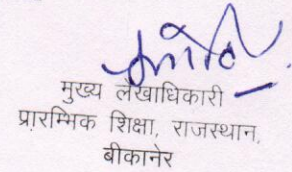 मुख्य लेखाधिकारी
प्रारम्भिक शिक्षा, राजस्थान,
बीकानेर